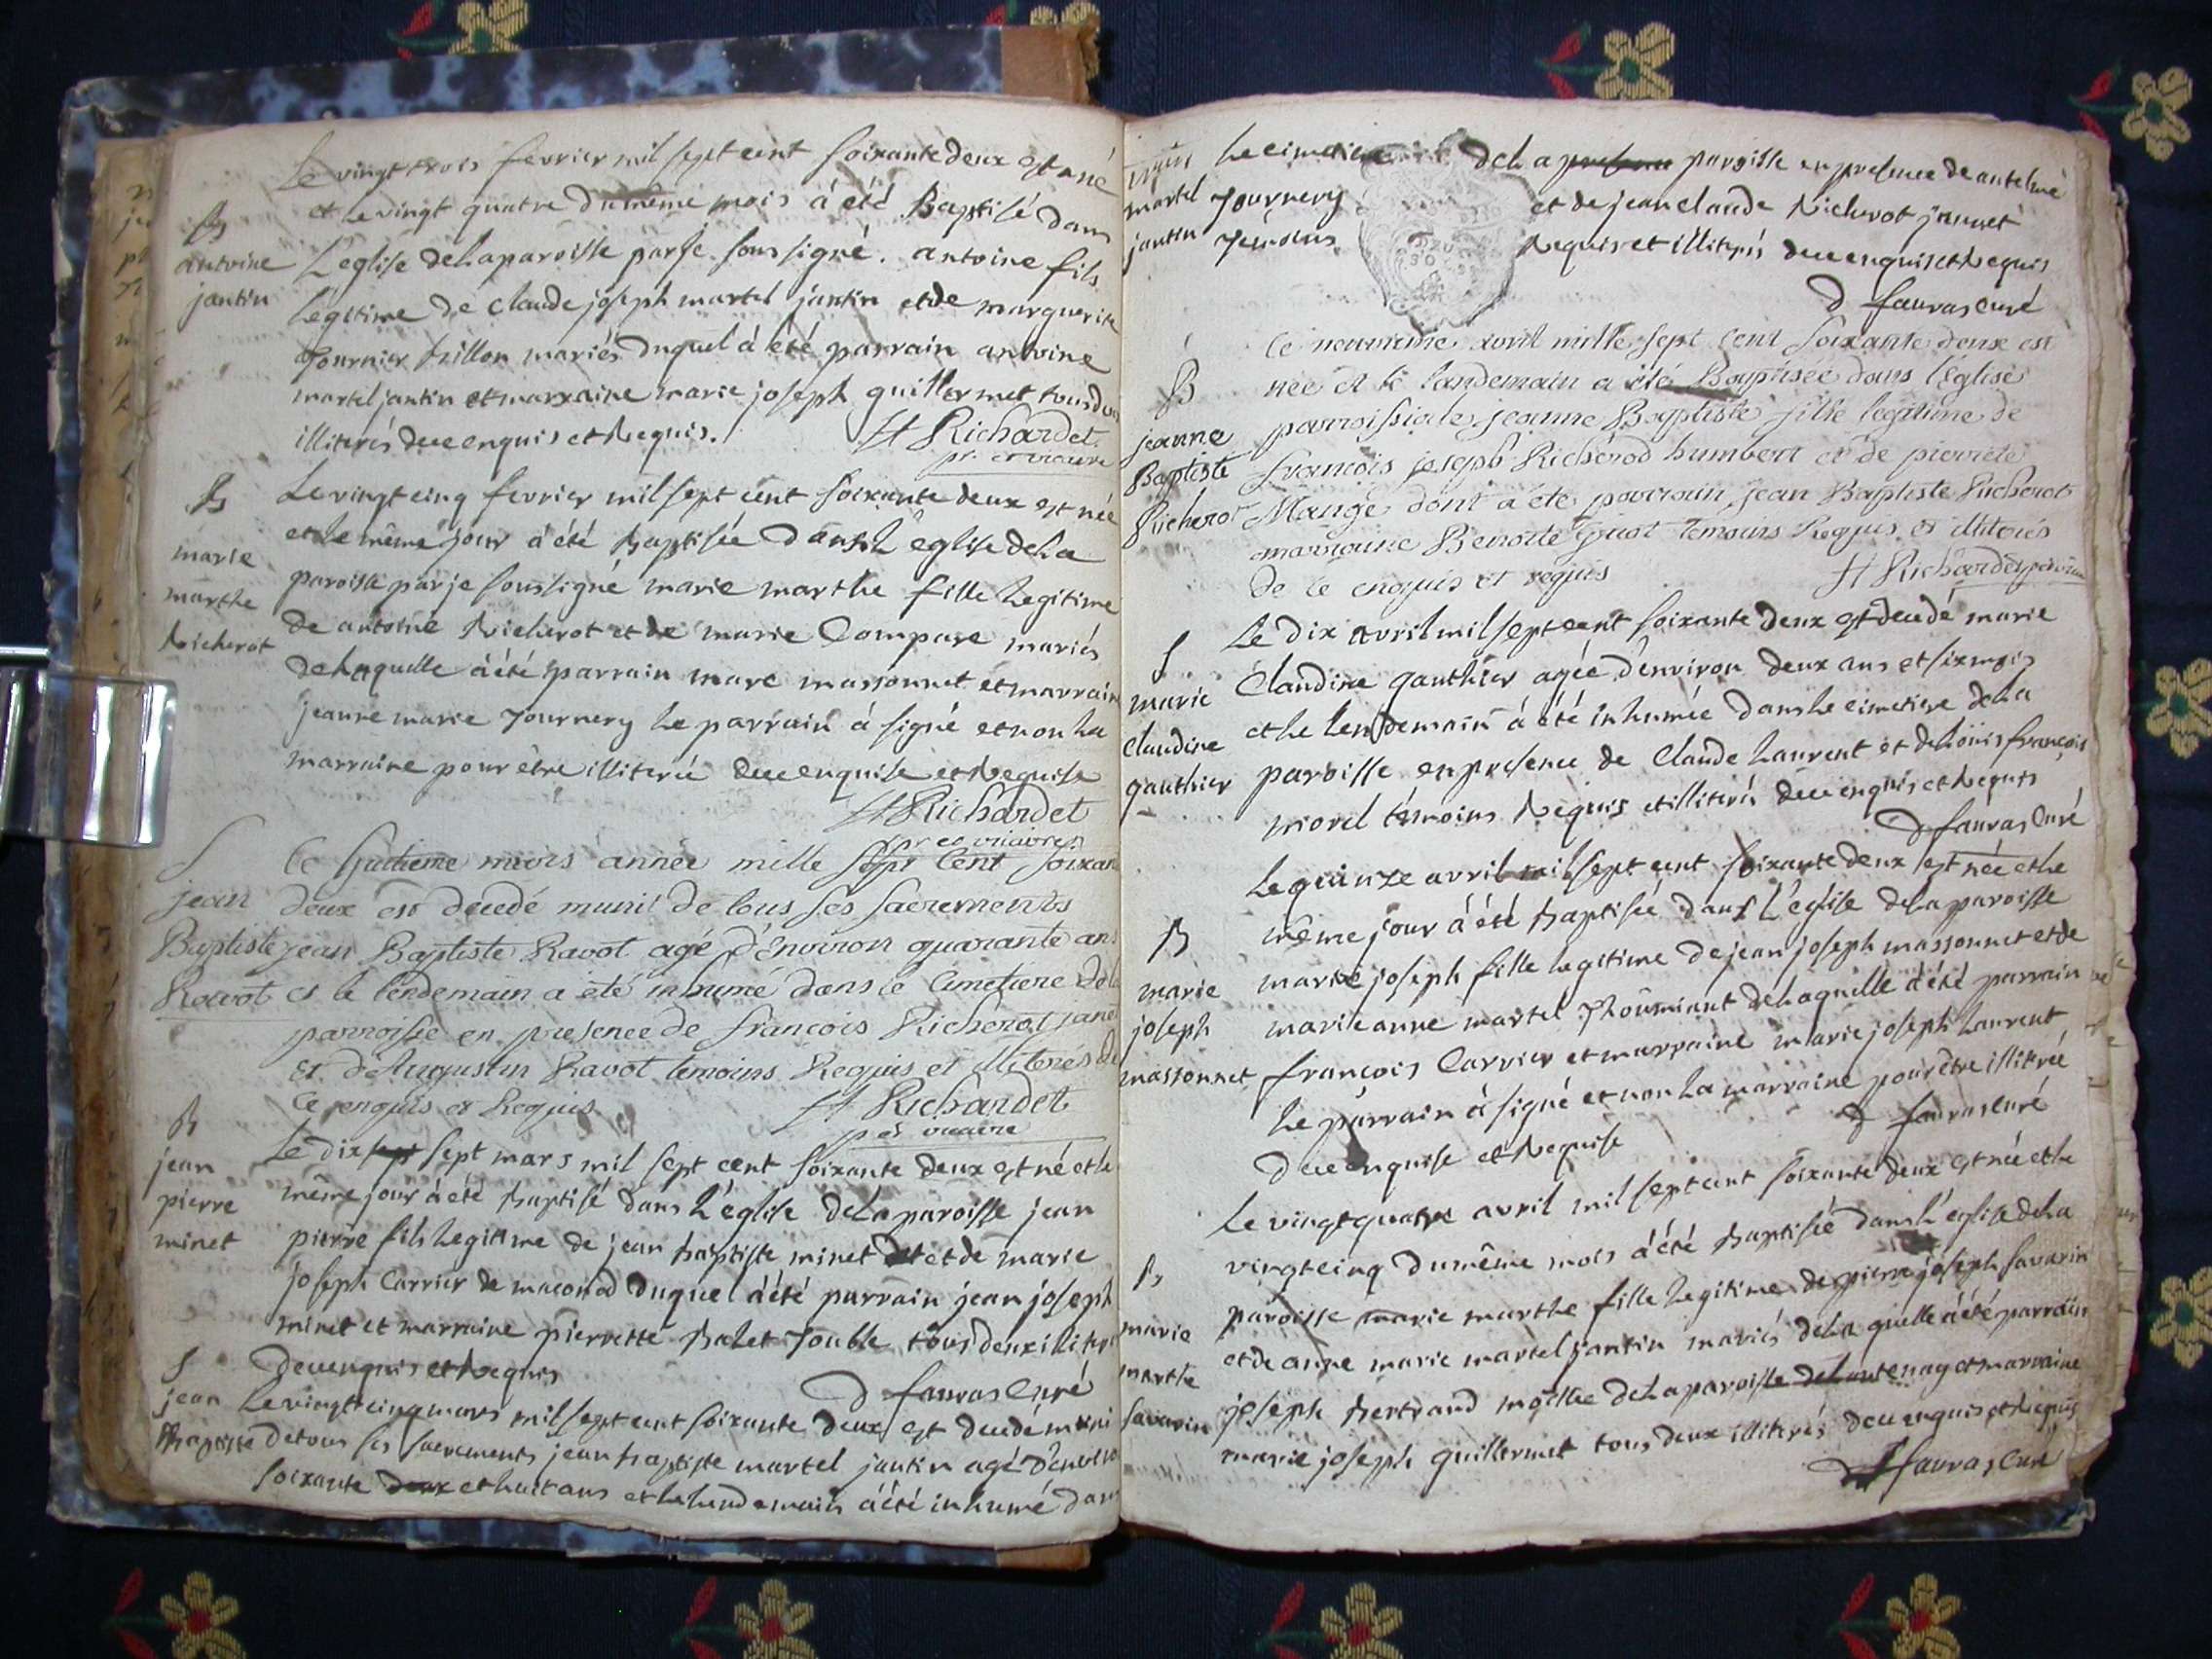 Le vingt trois fevrier mil sept cent soixante deux est né
et le vingt quatre du même mois à été Baptisé dans
B
antoine
jantin
L'église de la paroisse par je soussigné. antoine fils
légitime de claude joseph martel jantin et de marguerite
tournier trillon mariés duquel à été parrain antoine
martel jantin et marraine marie joseph guillermet tous deux
illiterés de ce enquis et Requis.
H Richardet
pr et vicaire
B
marie
marthe
Richerot
Le vingt cinq fevrier mil sept cent soixante deux est née
et le même jour à été baptisée dans L'eglise de La
paroisse par je soussigné marie marthe fille Legitime
de antoine Richerot et de marie Compare mariés
de Laquelle à été parrain marc massonnet et marraine
jeanne marie Journery Le parrain à signé et non La
marraine pour être illiterée de ce enquise et Requise
H Richardet
pr et vicaire
S
jean
Baptiste
Ravot
le huitieme mars année mille sept cent soixante
deux est decedé muni de tous ses sacrements
jean Baptiste Ravot agé d'Environ quarante ans
et le lendemain a été inhumé dans le cimetiere de la
parroisse en presence de francois Richerot janet
et d'Augustin Ravot temoins Requis et illiterés de
ce enquis et Requis
H Richardet
p et vicaire
B
jean
pierre
minet
Le dix sept sept mars mil sept cent soixante deux est né et le
même jour à été baptisé dans L'église de La paroisse jean
pierre fils Legitime de jean baptiste minet et et de marie
joseph Carrier de maconod duquel à été parrain jean joseph
minet et marraine pierrette balet Jouble tous deux illiterés
de ce enquis et Requis
D fauras Curé
S
jean
Baptiste
Le vingt cinq mars mil sept cent soixante deux est decedé muni
de tous ses sacrements jean baptiste martel jantin agé d'environ
soixante deux et huit ans et le lendemain à été inhumé dans
martel
jantin
Le cimetiere de La presence paroisse en presence de antelme
Journery et de jean claude Richerot jannet
Temoins Requis et illiterés de ce enquis et Requis
D fauras curé
B
jeanne
Baptiste
Richerot
le neuvieme avril mille sept cent soixante deux est
née et le landemain a été Baptisée dans l'église
parroissiale jeanne Baptiste fille legitime de
francois joseph Richerod humbert et de pierrete
Mange dont a été parrain jean Baptiste Richerot
marraine Benoite Guiot temoins Requis et illiterés
de ce enquis et requis
H Richardet p et vicaire
S
marie
Claudine
gauthier
Le dix avril mil sept cent soixante deux est decedé marie
Claudine gauthier agée d'environ deux ans et six mois
et le Lendemain à été inhumée dans Le cimetiere de La
paroisse en presence de Claude Laurent et de Loüis françois
morel témoins Requis et illiterés de ce enquis et Requis
D fauras Curé
B
marie
joseph
massonnet
Le quinze avril mil sept cent soixante deux est née et le
même jour à été baptisée dans L'église de La paroisse
marie joseph fille Legitime de jean joseph massonnet et de
marie anne martel Thoumiant de Laquelle à été parrain
françois Carrier et marraine marie joseph Laurent
Le parrain à signé et non La marraine pour être illitrée
de ce enquise et Requise
D fauras curé
B
marie
marthe
Savarin
Le vingt quatre avril mil sept cent soixante deux est née et le
vingt cinq du même mois à été baptisée dans L'eglise de La
paroisse marie marthe fille Legitime de pierre joseph savarin
et de anne marie martel jantin mariés de La quelle à été parrain
joseph bertrand de La paroisse de Lantenay et marraine
marie joseph guillermet tous deux illiterés de ce enquis et Requis
D fauras Curé